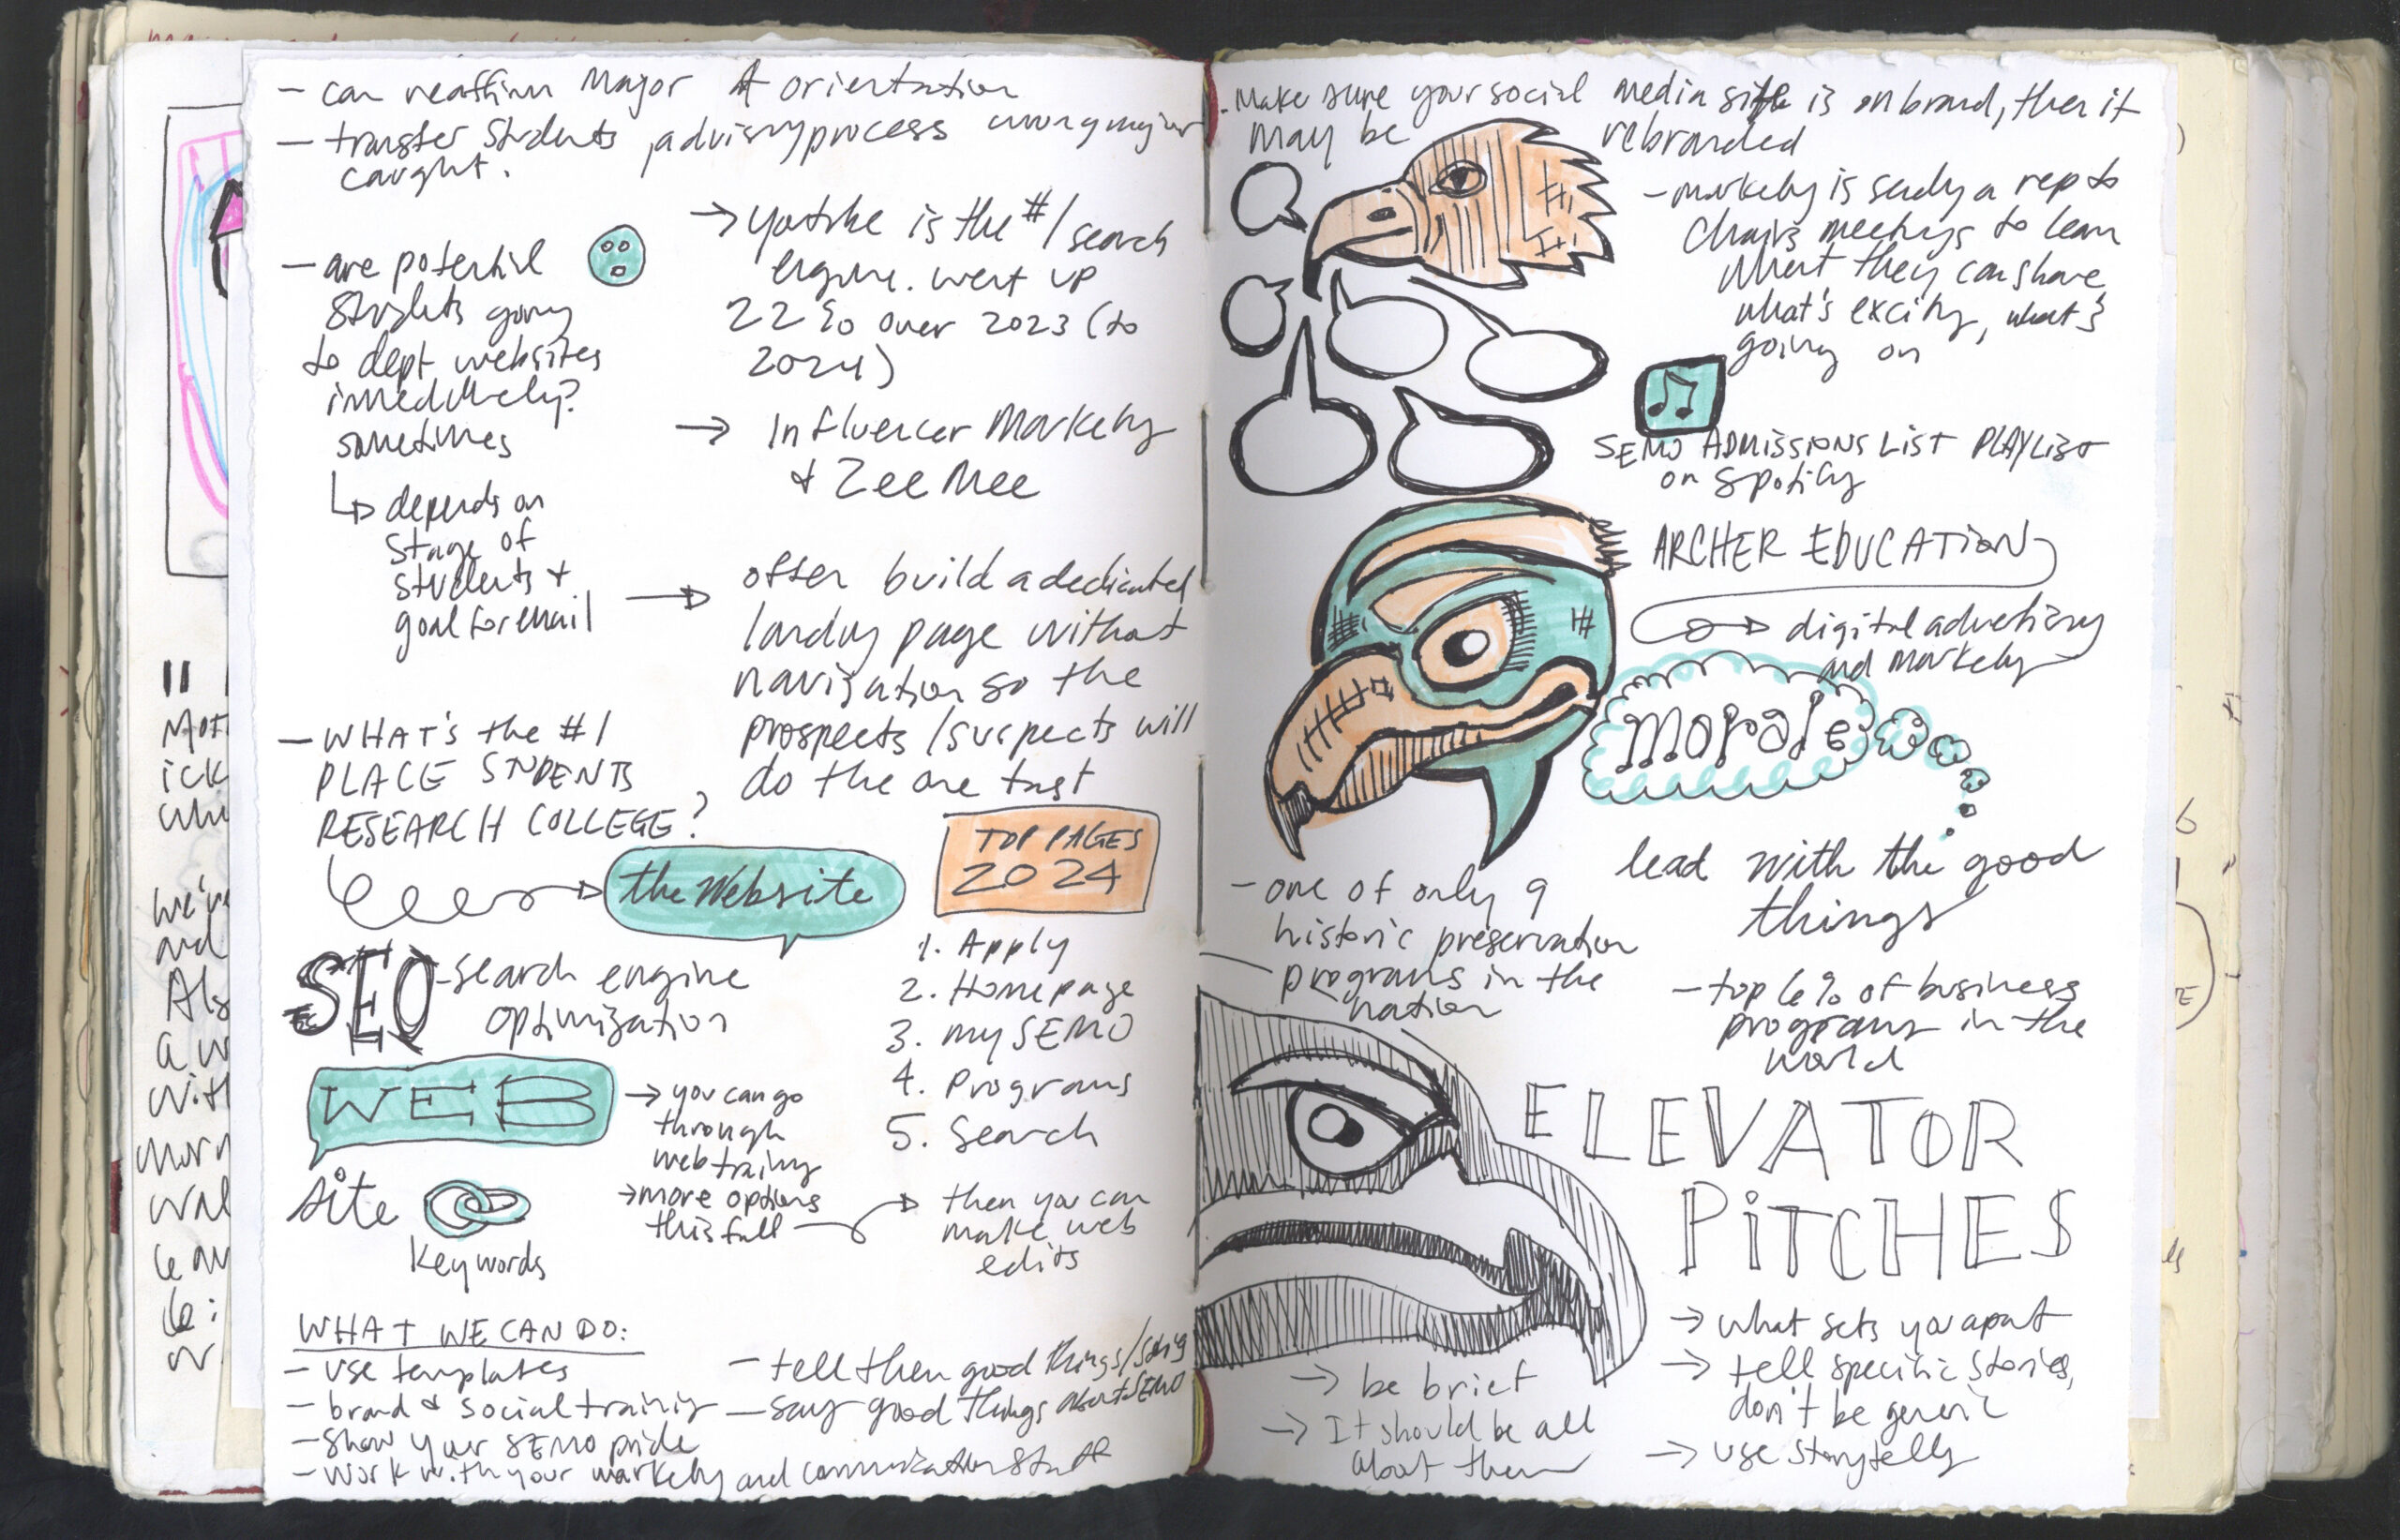 - can reaffirm Major at orientation
- transfer students, advising process wrong major
caught.
- are potential
students going
to dept websites
immediately?
sometimes
depends on
stage of
students +
goal for email
→ youtube is the #1 search
engine. went up
22% over 2023 (to
2024)
→ Influencer Marketing
& Zee Mee
often build a dedicated
landing page without
navigation so the
prospects/suspects will
do the one task
- WHAT'S the #1
PLACE STUDENTS
RESEARCH COLLEGE?
the Website
TOP PAGES
2024
1. Apply
2. Homepage
3. my SEMO
4. Programs
5. Search
SEO - search engine
optimization
WEB
site
keywords
→ you can go
through
web training
→ more options
this fall
then you can
make web
edits
WHAT WE CAN DO:
- use templates
- brand & social training
- show your SEMO pride
- work with your marketing and communication staff
- tell them good things/
- say good things about SEMO
- Make sure your social media site is on brand, then it
may be rebranded
- marketing is sending a rep to
chairs meetings to learn
what they can share
what's exciting, what's
going on
SEMO ADMISSIONS LIST PLAYLIST
on Spotify
ARCHER EDUCATION
digital advertising
and marketing
morale
lead with the good
things
- one of only 9
historic preservation
programs in the
nation
- top 6% of business
programs in the
world
ELEVATOR
PITCHES
→ what sets you apart
→ tell specific stories,
don't be generic
→ use storytelling
→ be brief
→ It should be all
about them